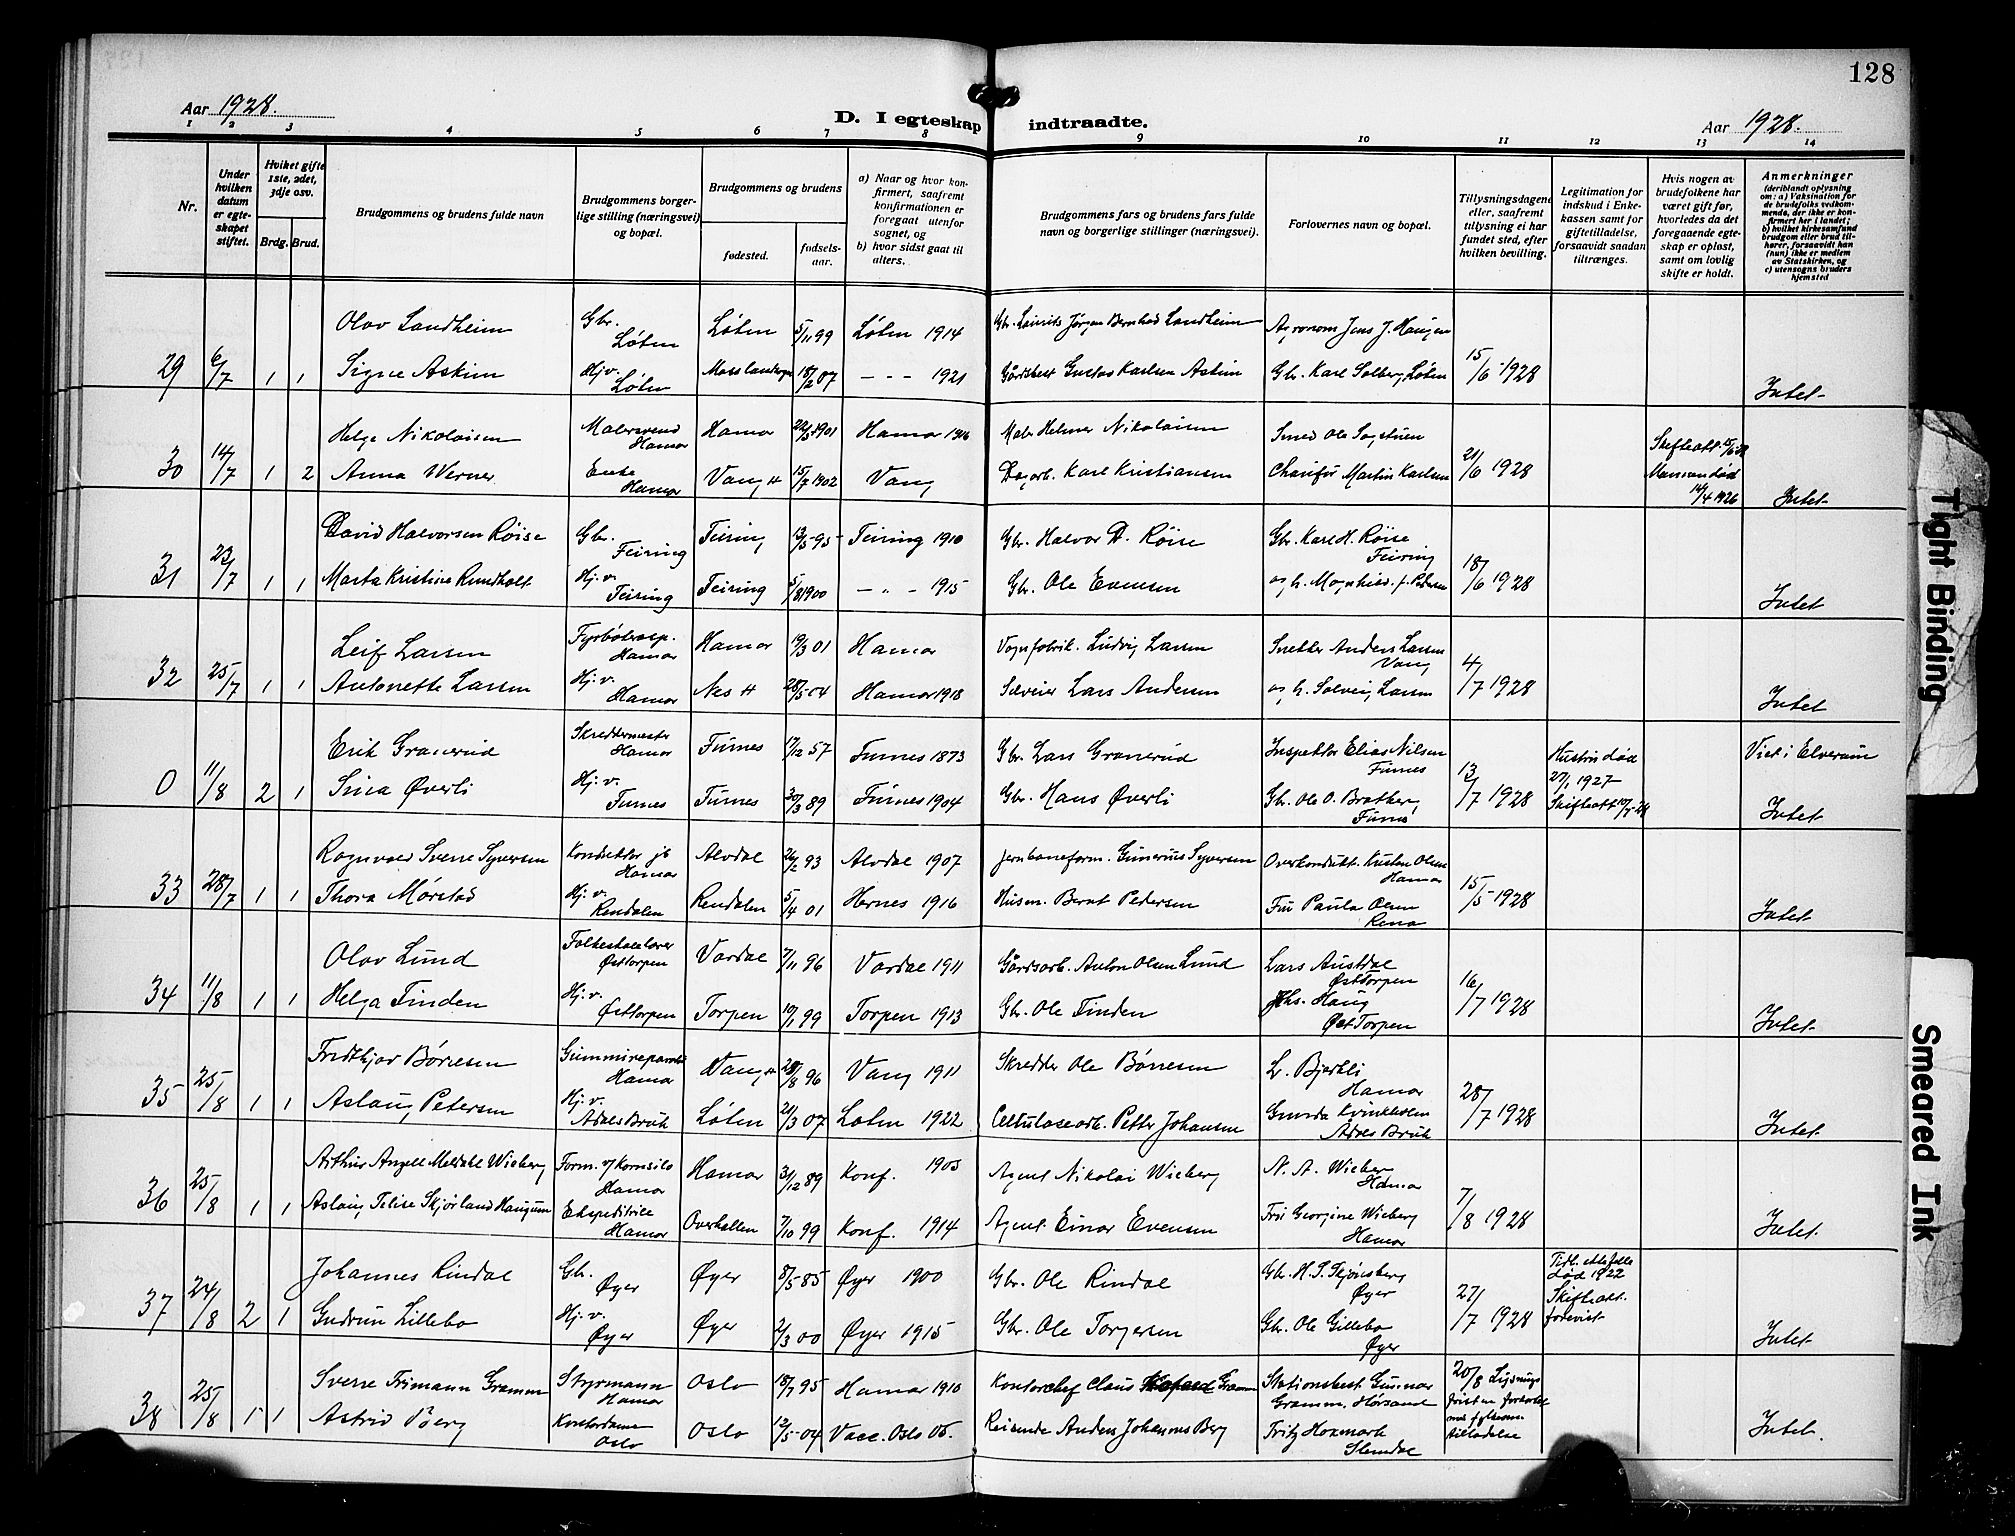 128
Aar 1928.
D. I egteskap indtraadte.
Aar 1928.
1 2 3 4 5 6 7 8 9 10 11 12 13 14
Nr.
Under hvilken datum er egteskapet stiftet.
Hviket gifte 1ste, 2det, 3dje osv.
Brdg. Brud.
Brudgommens og brudens fulde navn
Brudgommens borgerlige stilling (næringsvei) og bopæl.
Brudgommens og brudens
fødested.
fødselsaar.
a) Naar og hvor konfirmert, saafremt konfirmationen er foregaat utenfor sognet, og
b) hvor sidst gaat til alters.
Brudgommens fars og brudens fars fulde navn og borgerlige stillinger (næringsvei).
Forlovernes navn og bopæl.
Tillysningsdagene eller, saafremt tillysning ei har fundet sted, efter hvilken bevilling.
Legitimation for indskud i Enkekassen samt for giftetilladelse, forsaavidt saadan tiltrænges.
Hvis nogen av brudefolkene har været gift før, hvorledes da det foregaaende egteskap er opløst, samt om lovlig skifte er holdt.
Anmerkninger
(deriblandt oplysning om: a) Vaksination for de brudefolks vedkommende, der ikke er konfirmert her i landet; b) hvilket kirkesamfund brudgom eller brud tilhører, forsaavidt han (hun) ikke er medlem av Statskirken, og c) utensogns bruders hjemsted
Olav Sandheim Gbr. Løten Løten 5/11 99 Løten 1914 Gbr. Laurits Jørgen Bernhard Sandheim Agronom Jens J. Haugen
29 6/7 1 1 Signe Askim Hjv. Løten Moss landsogn 18/2 07 — - - 1921 Gårdsbest Gustav Karlsen Askim Gbr. Karl Solberg, Løten 15/6 1928 Intet
Helge Nikolaisen Malersvend Hamar Hamar 22/5 1901 Hamar 1916 Maler Helmer Nikolaisen Smed Ole Sagstuen
30 14/7 1 2 Anna Werner Enke Hamar Vang H 15/7 1902 Vang Dagarb. Karl Kristiansen Chaufør Martin Karlsen 21/6 1928 Skifteatt. Mannen død 14/4 1926 Intet
David Halvorsen Röise Gbr. Feiring Feiring 13/5 95 Feiring 1910 Gbr. Halvor D. Röise Gbr. Karl H. Röise Feiring
31 23/7 1 1 Marta Kristine Rundholt Hj.v. Feiring Feiring 5/8 1900 — „ — 1915 Gbr. Ole Evensen 18/6 1928 Intet
Leif Larsen Fyrbøterasp. Hamar Hamar 19/3 01 Hamar Vognfabrik. Ludvig Larsen Snekker Anders Larsen Vang
32 25/7 1 1 Antonette Larsen Hj.v. Hamar Nes H 28/5 04 Hamar 1918 Lars Andersen og h. Solveig Larsen 4/7 1928 Intet
Erik Granerud Skreddermester Hamar Furnes 17/12 57 Furnes 1873 Gbr. Lars Granerud Inspektør Elias Nilsen Furnes Hustru død 27/1 1927 Viet i Elverum
0 11/8 2 1 Sina Øverli Hj.v. Furnes Furnes 30/3 89 Furnes 1904 Gbr. Hans Øverli Gbr. Ole O. Bratberg, Furnes 13/7 1928 Skifteatt Intet
Ragnvald Sverre Syversen Konduktør jb Hamar Alvdal 26/2 93 Alvdal 1907 Jernbaneform. Gunerius Syversen Overkondukt. Kristen Olsen Hamar
33 28/7 1 1 Thora Mørstad Hj.v. Rendalen Rendalen 5/4 01 Hernes 1916 Husm. Bernt Pedersen Fru Paula Olsen Rena 15/5 1928 Intet
Olav Lund Folkeskolelærer Østtorpen Vardal 7/11 96 Vardal 1911 Gårdsarb. Anton Olsen Lund Lars Austdal Østtorpen
34 11/8 1 1 Helga Finden Hj.v. Østtorpen Torpen 10/1 99 Torpen 1913 Gbr. Ole Finden Jhs. Haug Øst Torpen 16/7 1928 Intet
Fridthjov Børresen Hamar Vang H 28/8 96 Vang 1911 Skredder Ole Børresen L. Bjerkli Hamar
35 25/8 1 1 Aslaug Petersen Hj.v. Ådals Bruk Løten 21/3 07 Løten 1922 Cellulosearb. Petter Johansen Gunda Kvinkholm Ådals Bruk 28/7 1928 Intet
Arthur Angell Meldahl Wieberg Form. v/ Kornsilo Hamar Hamar 31/12 89 Konf. 1905 Agent Nikolai Wieberg N. A. Wieberg Hamar
36 25/8 1 1 Aslaug Felise Skjørland Haugum Ekspeditrice Hamar Overhallen 7/10 99 Konf. 1914 Agent Einar Evensen Fru Georgine Wieberg Hamar 7/8 1928 Intet
Johannes Rindal Gbr. Øyer Øyer 8/5 85 Øyer 1900 Gbr. Ole Rindal Gbr. H. T. Skjønsberg Øyer Tidl. ektefelle død 1922
37 24/8 2 1 Gudrun Lillebo Hj.v. Øyer Øyer 2/3 00 Øyer 1915 Gbr. Ole Torgersen Gbr. Ole Lillebo Øyer 27/7 1928 Skifteatt. forevist Intet
Sverre Frimann Gramm Styrmann Hamar Oslo 18/7 95 Hamar 1910 Kontorchef Claus Gramm Stationsbest. Gunnar Gramm, Hørsand 20/8 Lysnings fristen forkortet
38 25/8 1 1 Astrid Berg Kontordame Oslo Oslo 12/5 04 Vacc. Oslo 05. Reisende Anders Johannes Berg Fritz Hoxmark Slemdal tilladelse Intet.
Tight Binding
Smeared Ink